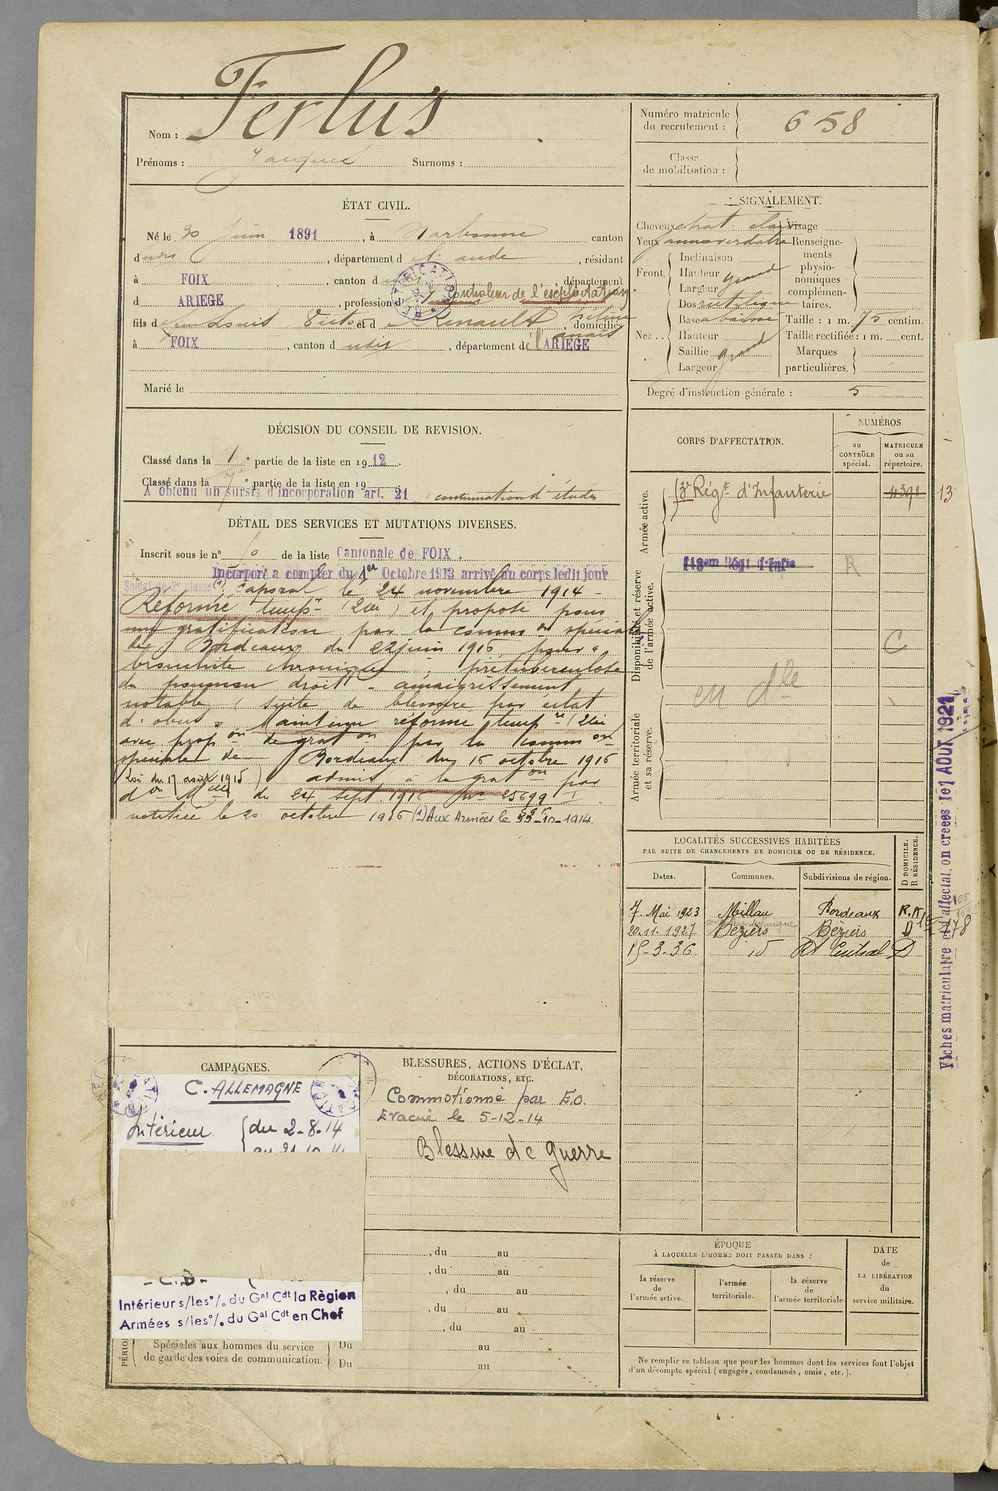 Nom : Ferlus
Prénoms : Jacques Surnoms :
Numéro matricule du recrutement : 658
Classe de mobilisation :
ÉTAT CIVIL.
Né le 30 Juin 1891, à Narbonne canton
dudit, département de l'aude, résidant
à FOIX, canton d département
d ARIEGE, profession d de l'exploitation
fils d et d Renault, domiciliés
à FOIX, canton dudit, département de l'ARIEGE
Marié le
SIGNALEMENT.
Cheveux chat clair Visage
Yeux Renseignements physionomiques complémentaires.
Front. Inclinaison
Hauteur grand
Largeur
Nez.. Dos rectiligne
Base abaissée
Hauteur
Saillie grand
Largeur
Taille : 1 m. 75 centim.
Taille rectifiée : 1 m. cent.
Marques particulières.
Degré d'instruction générale : 5
DÉCISION DU CONSEIL DE REVISION.
Classé dans la 1 e partie de la liste en 1912.
Classé dans la e partie de la liste en 19
A obtenu un sursis d'incorporation art. 21 continuation d'études
DÉTAIL DES SERVICES ET MUTATIONS DIVERSES.
Inscrit sous le n° de la liste Cantonale de FOIX.
Incorporé a compter du 1er Octobre 1913 arrivé au corps ledit jour
Soldat de 2e classe (1) Caporal le 24 novembre 1914 -
Réformé temp re (2 ) et proposé pour
une gratification par la comm on spéciale
de Bordeaux du 22 juin 1915 pour "
bronchite chronique, prétuberculose
du poumon droit - amaigrissement
notable (suite de blessure par éclat
d'obus". Maintenu réformé temp re (2 )
avec prop on de grat on par la comm on
spéciale de Bordeaux du 16 octobre 1915
(Loi du 17 août 1915) admis à la grat on par
d on M lle du 24 sept 1916 no 25699 I
notifiée le 20 octobre 1916 (1) Aux Armées le -10-1914.
CORPS D'AFFECTATION.
NUMÉROS
au CONTRÔLE spécial.
MATRICULE ou au répertoire.
Armée active.
Rég t d'Infanterie 4391 13
Disponibilité et réserve de l'armée active.
R
C
Armée territoriale et sa réserve.
LOCALITÉS SUCCESSIVES HABITÉES
PAR SUITE DE CHANGEMENTS DE DOMICILE OU DE RÉSIDENCE.
Dates. Communes. Subdivisions de région. D DOMICILE. R RÉSIDENCE.
7. Mai 1923 Millau Bordeaux R.
20.11.1927 Béziers Béziers D
15-3-36 id Central D
Fiches matriculaire et d'affectat.on creées le 1 AOUT 1921
CAMPAGNES.
C. ALLEMAGNE
Intérieur { du 2-8-14
- C.D -
Intérieur s/les °/. du Gal Cdt la Règion
Armées s/les °/. du Gal Cdt en Chef
BLESSURES, ACTIONS D'ÉCLAT,
DÉCORATIONS, ETC.
Commotionné par E.O.
Evacué le 5-12-14
Blessure de guerre
, du au
, du au
, du au
, du au
, du au
Spéciales aux hommes du service de garde des voies de communication. Du au
Du au
ÉPOQUE
À LAQUELLE L'HOMME DOIT PASSER DANS :
la réserve de l'armée active.
l'armée territoriale.
la réserve de l'armée territoriale
DATE de LA LIBÉRATION du service militaire.
Ne remplir ce tableau que pour les hommes dont les services font l'objet
d'un décompte spécial (engagés, condamnés, omis, etc.).